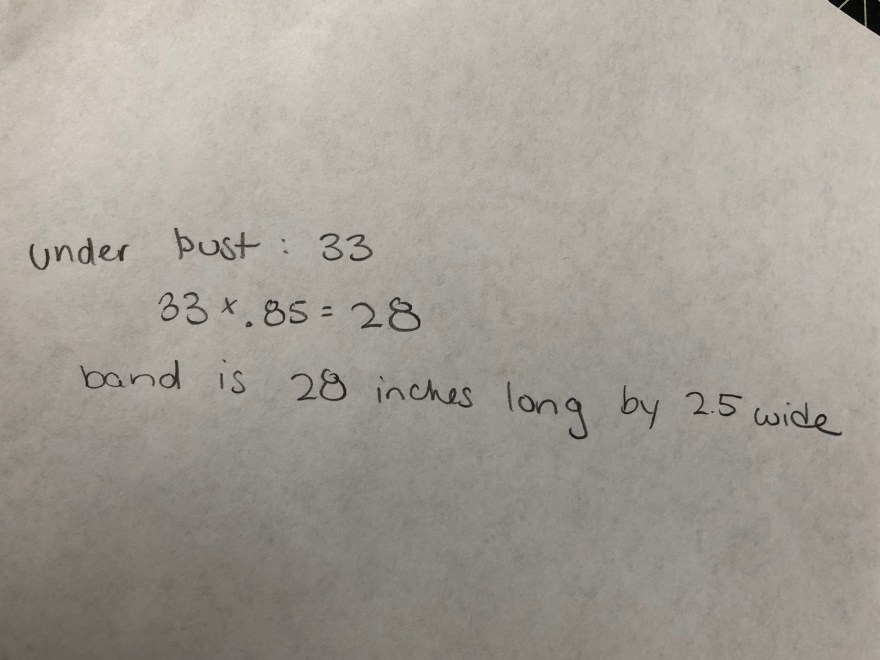 under bust : 33
33 x .85 = 28
band is 28 inches long by 2.5 wide